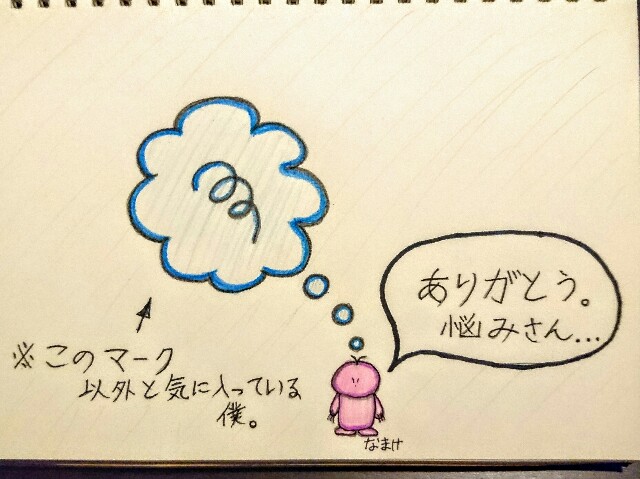 ありがとう。
悩みさん…
※このマーク
以外と気に入っている
僕。
なまけ